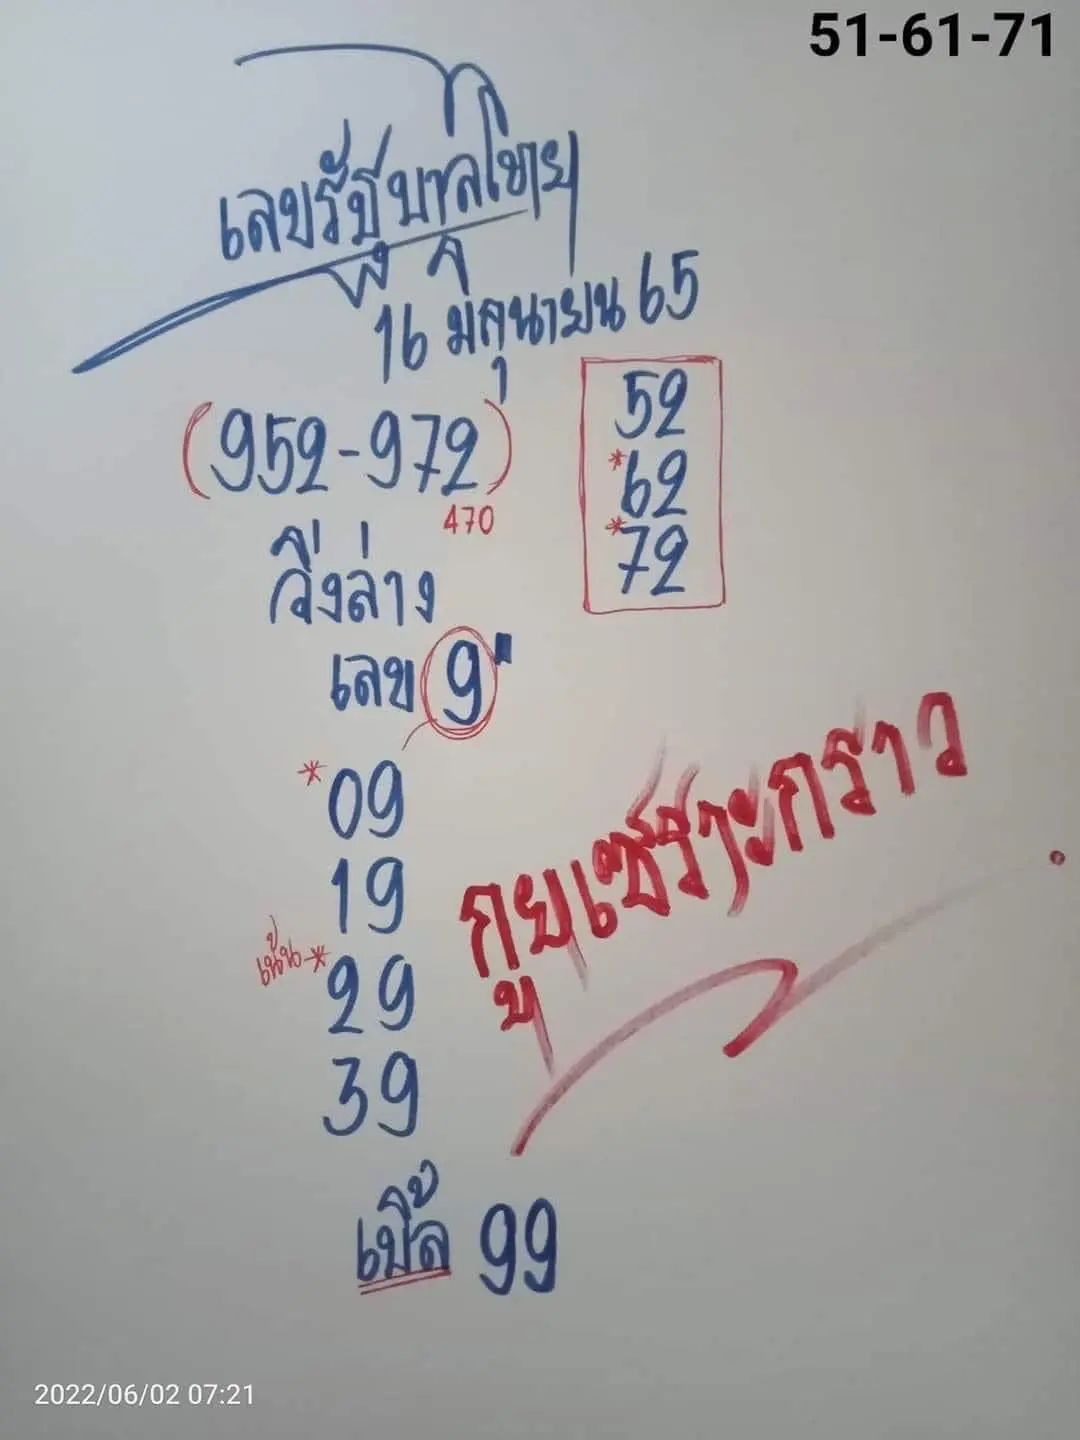 51-61-71
เลขรัฐบาลไทย
16 มิถุนายน 65
(952-972)
470
52
*62
*72
วิ่งล่าง
เลข 9"
*09
19
เน้น-*29
39
เบิ้ล 99
2022/06/02 07:21